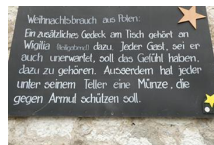 Weihnachtsbrauch aus Polen:
Ein zusätzliches Gedeck am Tisch gehört an
Wigilia (Heiligabend) dazu. Jeder Gast, sei er
auch unerwartet, soll das Gefühl haben,
dazu zu gehören. Ausserdem hat jeder
unter seinem Teller eine Münze, die
gegen Armut schützen soll.